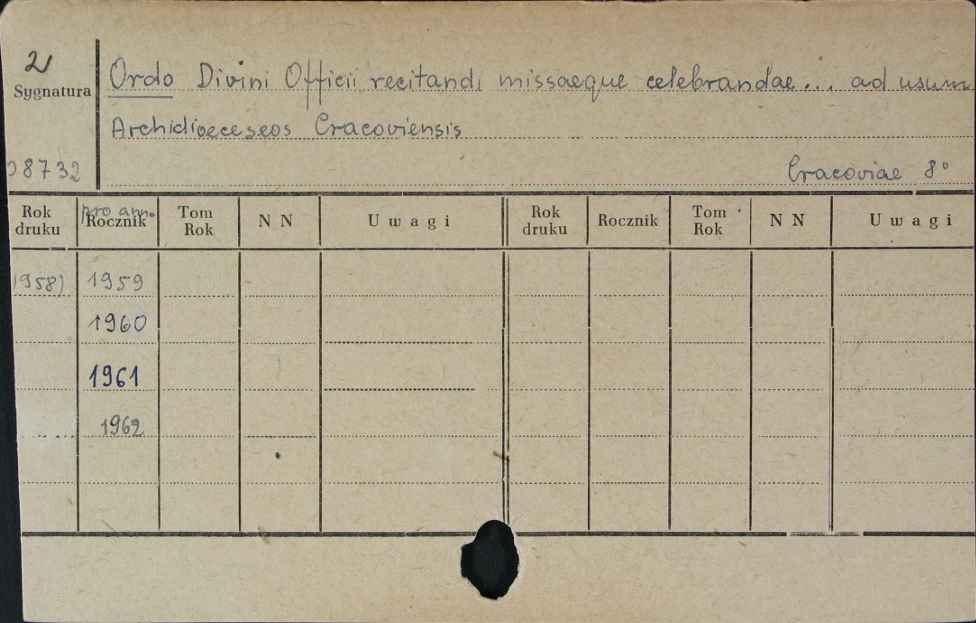 2
Sygnatura
Ordo Divini Officii recitandi missaeque celebrandae... ad usum
Archidioeceseos Cracoviensis
8732
Cracoviae 8°
Rok druku pro ann. Rocznik Tom Rok N N Uwagi Rok druku Rocznik Tom Rok N N Uwagi
1958) 1959
1960
1961
1962